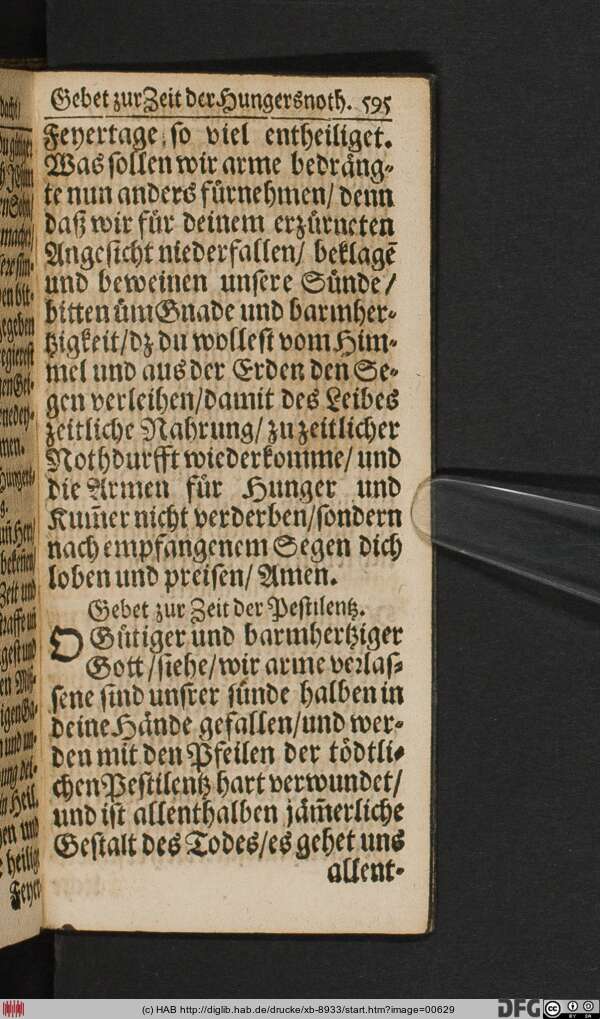 Gebet zur Zeit der Hungersnoth. 595
Feyertage so viel entheiliget.
Was sollen wir arme bedräng-
te nun anders fürnehmen/ denn
daß wir für deinem erzürneten
Angesicht niederfallen/ beklagē
und beweinen unsere Sünde/
bitten üm Gnade und barmher-
tzigkeit/dz du wollest vom Him-
mel und aus der Erden den Se-
gen verleihen/damit des Leibes
zeitliche Nahrung/ zu zeitlicher
Nothdurfft wiederkomme/ und
die Armen für Hunger und
Kum̅er nicht verderben/sondern
nach empfangenem Segen dich
loben und preisen/ Amen.
Gebet zur Zeit der Pestilentz.
O Gütiger und barmhertziger
Gott/siehe/wir arme verlas-
sene sind unsrer sünde halben in
deine Hände gefallen/und wer-
den mit den Pfeilen der tödtli-
chen Pestilentz hart verwundet/
und ist allenthalben jäm̅erliche
Gestalt des Todes/es gehet uns
allent-
(c) HAB http://diglib.hab.de/drucke/xb-8933/start.htm?image=00629
DFG
cc BY SA